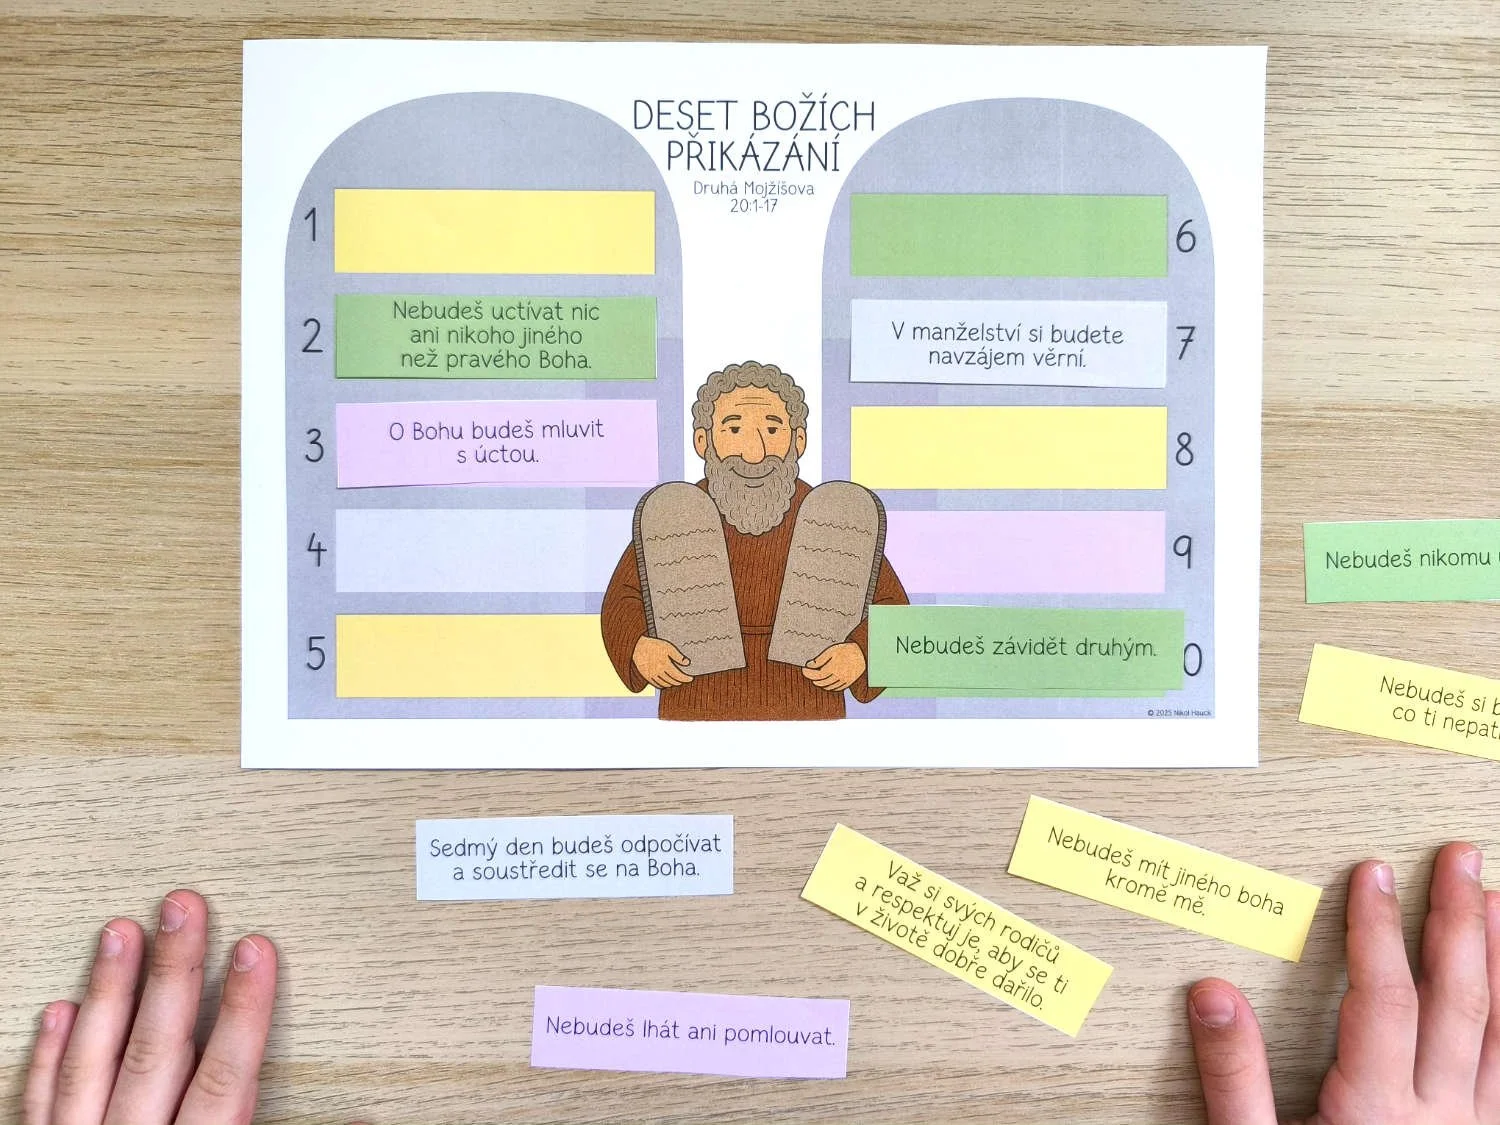 DESET BOŽÍCH
PŘIKÁZÁNÍ
Druhá Mojžíšova
20:1-17
1
2
Nebudeš uctívat nic
ani nikoho jiného
než pravého Boha.
3
O Bohu budeš mluvit
s úctou.
4
5
6
V manželství si budete
navzájem věrní.
7
8
9
Nebudeš závidět druhým.
0
© 2025 Nikol Hauck
Nebudeš nikomu
Nebudeš si
co ti
Sedmý den budeš odpočívat
a soustředit se na Boha.
Važ si svých rodičů
a respektuj je, aby se ti
v životě dobře dařilo.
Nebudeš mít jiného boha
kromě mě.
Nebudeš lhát ani pomlouvat.